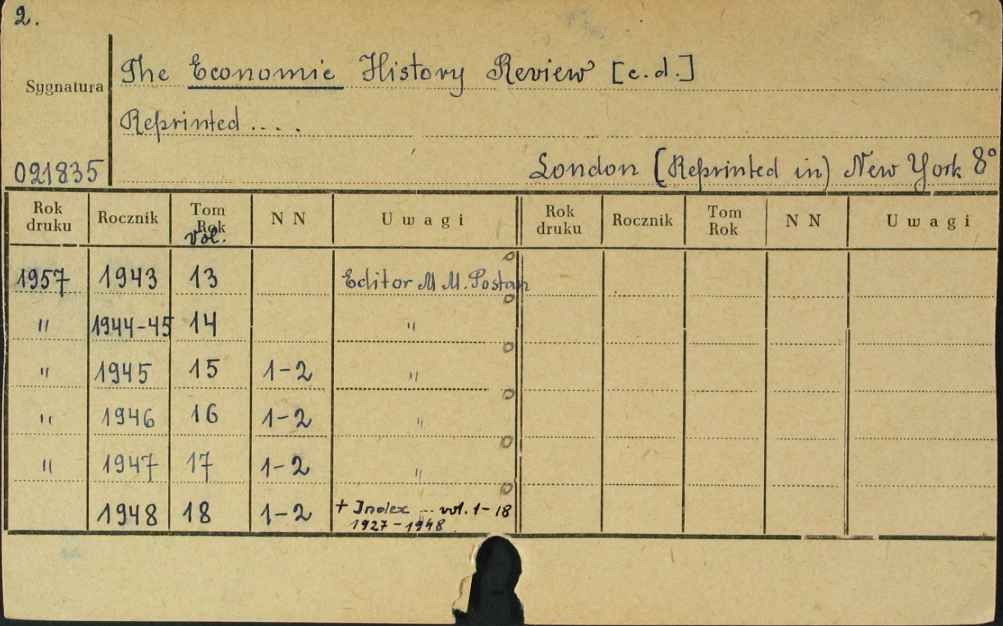 2.
Sygnatura
The Economic History Review [c.d.]
Reprinted....
021835
London (Reprinted in) New York 8°
Rok druku Rocznik Tom Rok Vol. N N Uwagi Rok druku Rocznik Tom Rok N N Uwagi
1957 1943 13 Editor M M. Postan
" 1944-45 14 "
" 1945 15 1-2 "
" 1946 16 1-2 "
" 1947 17 1-2 "
1948 18 1-2 + Index ... vol. 1-18
1927-1948